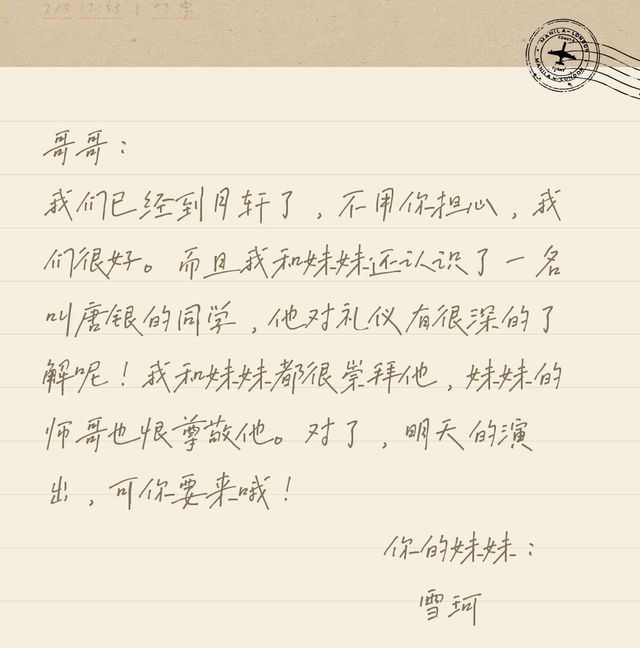 2/3 12:58 | 97 字
MANILA-LONDON
MANILA-LONDON
哥哥：
我们已经到月轩了，不用你担心，我
们很好。而且我和妹妹还认识了一名
叫唐银的同学，他对礼仪有很深的了
解呢！我和妹妹都很崇拜他，妹妹的
师哥也恨尊敬他。对了，明天的演
出，可你要来哦！
你的妹妹：
雪珂